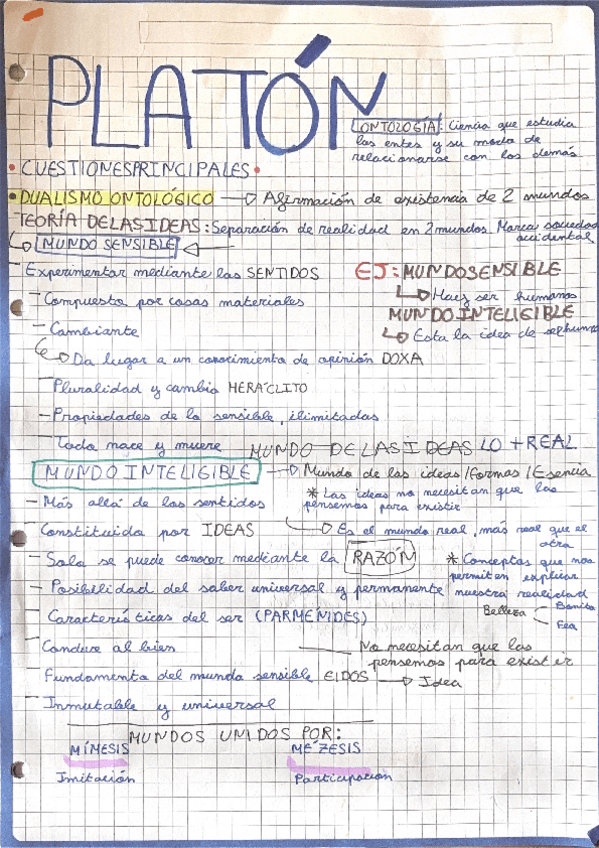 PLATÓN
ONTOLOGÍA: Ciencia que estudia
los entes y su modo de
relacionarse con los demás
• CUESTIONES PRINCIPALES •
• DUALISMO ONTOLÓGICO → Afirmación de existencia de 2 mundos
TEORÍA DE LAS IDEAS: Separación de realidad en 2 mundos. Marca sociedad
occidental
MUNDO SENSIBLE
- Experimentar mediante los SENTIDOS
- Compuesto por cosas materiales
- Cambiante
Da lugar a un conocimiento de opinión DOXA
- Pluralidad y cambio HERÁCLITO
- Propiedades de lo sensible, ilimitadas
- Todo nace y muere
EJ: MUNDO SENSIBLE
Hay ser humano
MUNDO INTELIGIBLE
Esta la idea de
MUNDO DE LAS IDEAS LO + REAL
MUNDO INTELIGIBLE → Mundo de las ideas / Formas / Esencia
* Las ideas no necesitan que las
pensemos para existir
- Más allá de los sentidos
- Constituido por IDEAS
→ Es el mundo real, más real que el
otro
- Solo se puede conocer mediante la RAZÓN
* Conceptos que nos
permiten explicar
nuestra realidad
- Posibilidad del saber universal y permanente
Belleza
Bonito
Fea
- Características del ser (PARMÉNIDES)
- Conduce al bien
No necesitan que las
pensemos para existir
- Fundamento del mundo sensible EIDOS → Idea
- Inmutable y universal
MUNDOS UNIDOS POR:
MÍMESIS
Imitación
MÉZESIS
Participación